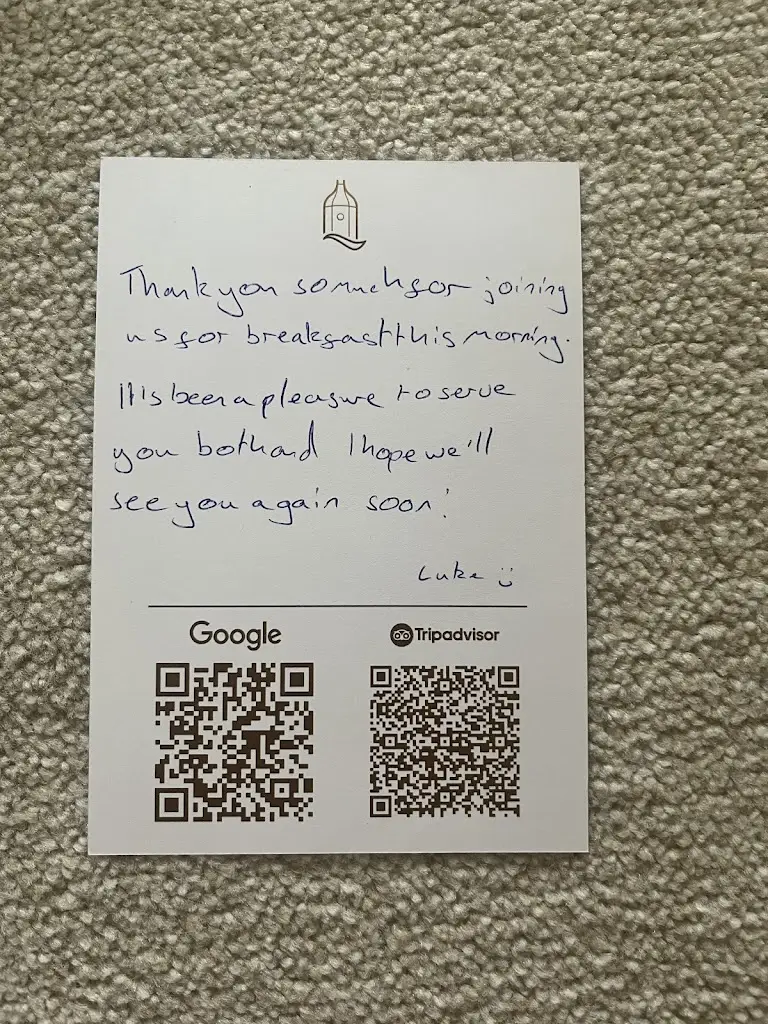 Thank you so much for joining
us for breakfast this morning.
It's been a pleasure to serve
you both and I hope we'll
see you again soon!
Luke
Google
Tripadvisor